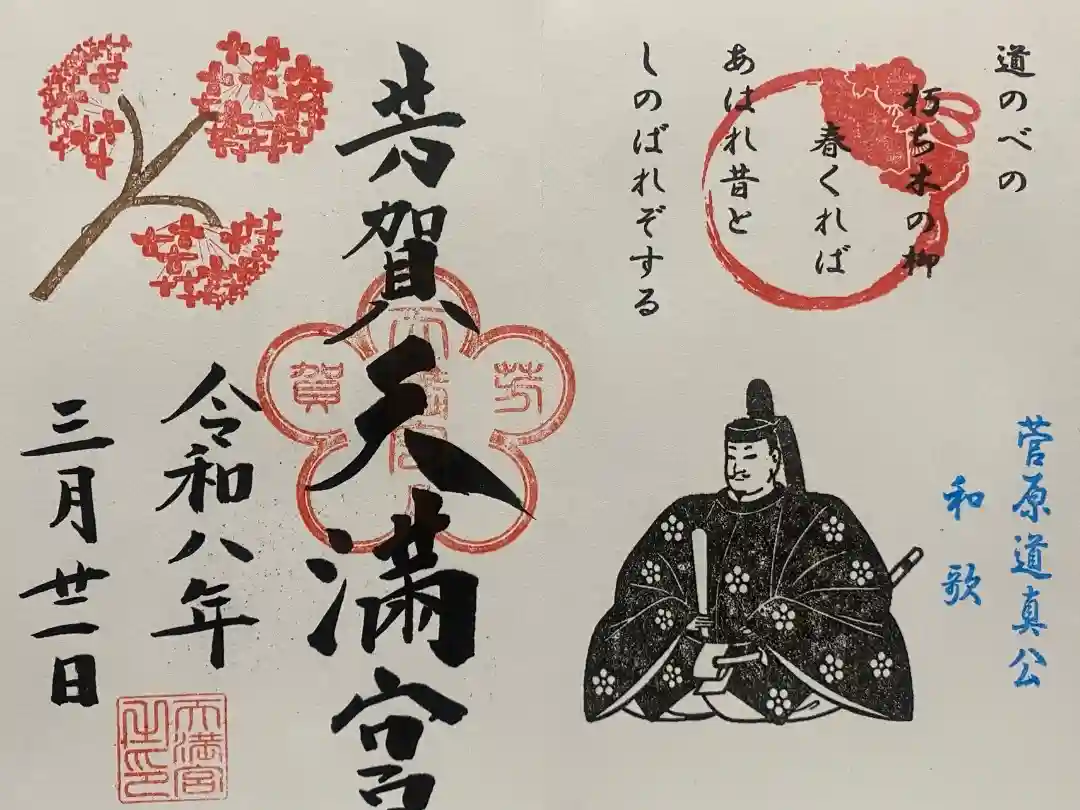 道のべの
朽ち木の柳
春くれば
あはれ昔と
しのばれぞする
菅原道真公
和歌
芳賀天満宮
芳賀
天満宮
令和八年
三月廿二日
天満宮
之印